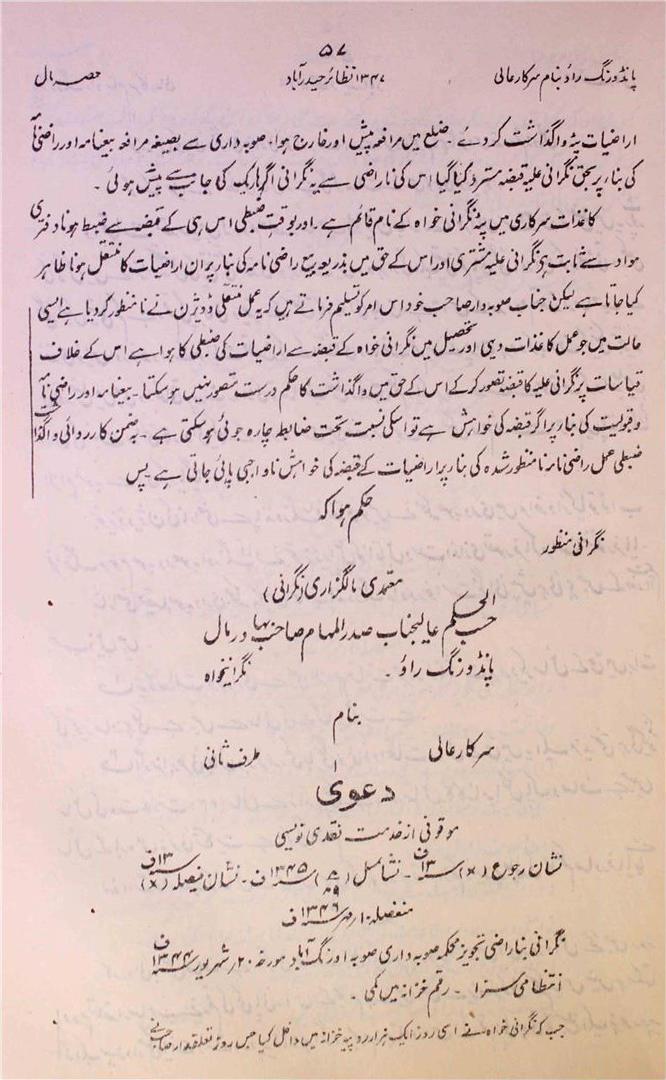 ۵۷
پانڈورنگ راؤ بنام سرکار عالی ۱۳۴۷ نظائر حیدرآباد حصہ مال
اراضیات پٹہ واگذاشت کردئے ۔ ضلع میں مرافعہ پیش اور خارج ہوا، صوبہ داری سے بصیغہ مرافعہ بیعنامہ اور راضی نامہ
کی بناء پر بحق نگرانی علیہ قبضہ مسترد کیا گیا اس کی ناراضی سے یہ نگرانی اگر ہارک کی جانب سے پیش ہوئی ۔
کاغذات سرکاری میں پٹہ نگرانی خواہ کے نام قائم ہے ۔ اور بوقت ضبطی اس ہی کے قبضہ سے ضبط ہونا دفتری
مواد سے ثابت ہے نگرانی علیہ مشتری اور اس کے حق میں بذریعہ بیع راضی نامہ کی بناء پر ان اراضیات کا منتقل ہونا ظاہر
کیا جاتا ہے لیکن جناب صوبہ دار صاحب خود اس امر کو تسلیم فرماتے ہیں کہ یہ عمل منتقلی ڈویژن نے نامنظور کردیا ہے ایسی
حالت میں جو عمل کاغذات دیہی اور تحصیل میں نگرانی خواہ کے قبضہ سے اراضیات کی ضبطی کا ہوا ہے اس کے خلاف
قیاسات پر نگرانی علیہ کا قبضہ تصور کرکے اس کے حق میں واگذاشت کا حکم درست متصور نہیں ہوسکتا ۔ بیعنامہ اور راضی نامہ
و قبولیت کی بناء پر اگر قبضہ کی خواہش ہے تو اسکی نسبت تحت ضابطہ چارہ جوئی ہوسکتی ہے ۔ بہ ضمن کارروائی واگذاشت
ضبطی عمل راضی نامہ نامنظور شدہ کی بناء پر اراضیات کے قبضہ کی خواہش ناواجبی پائی جاتی ہے ۔ پس
حکم ہوا کہ
نگرانی منظور
معتمدی مالگزاری (نگرانی)
حسب الحکم عالیجناب صدر المہام صاحب بہادر مال
پانڈورنگ راؤ ۔ نگرانیخواہ
بنام
سرکار عالی طرف ثانی
دعویٰ
موقوفی از خدمت نقدی نویسی
نشان رجوع (×) سنہ ۱۳ف ۔ نشان مثل (۵/۸۹) سنہ ۱۳۴۵ف ۔ نشان فیصلہ (×) سنہ ۱۳ف
منفصلہ ۱۰ مہر سنہ ۱۳۴۶ف
نگرانی بناراضی تجویز محکمہ صوبہ داری صوبہ اورنگ آباد مورخہ ۲۰ شہریور سنہ ۱۳۴۴ف
انتظامی سزا ۔ رقم خزانہ میں کمی ۔
جب کہ نگرانی خواہ نے اسی روز ایک ہزار روپیہ خزانہ میں داخل کیا جس روز تعلقدار صاحب نے